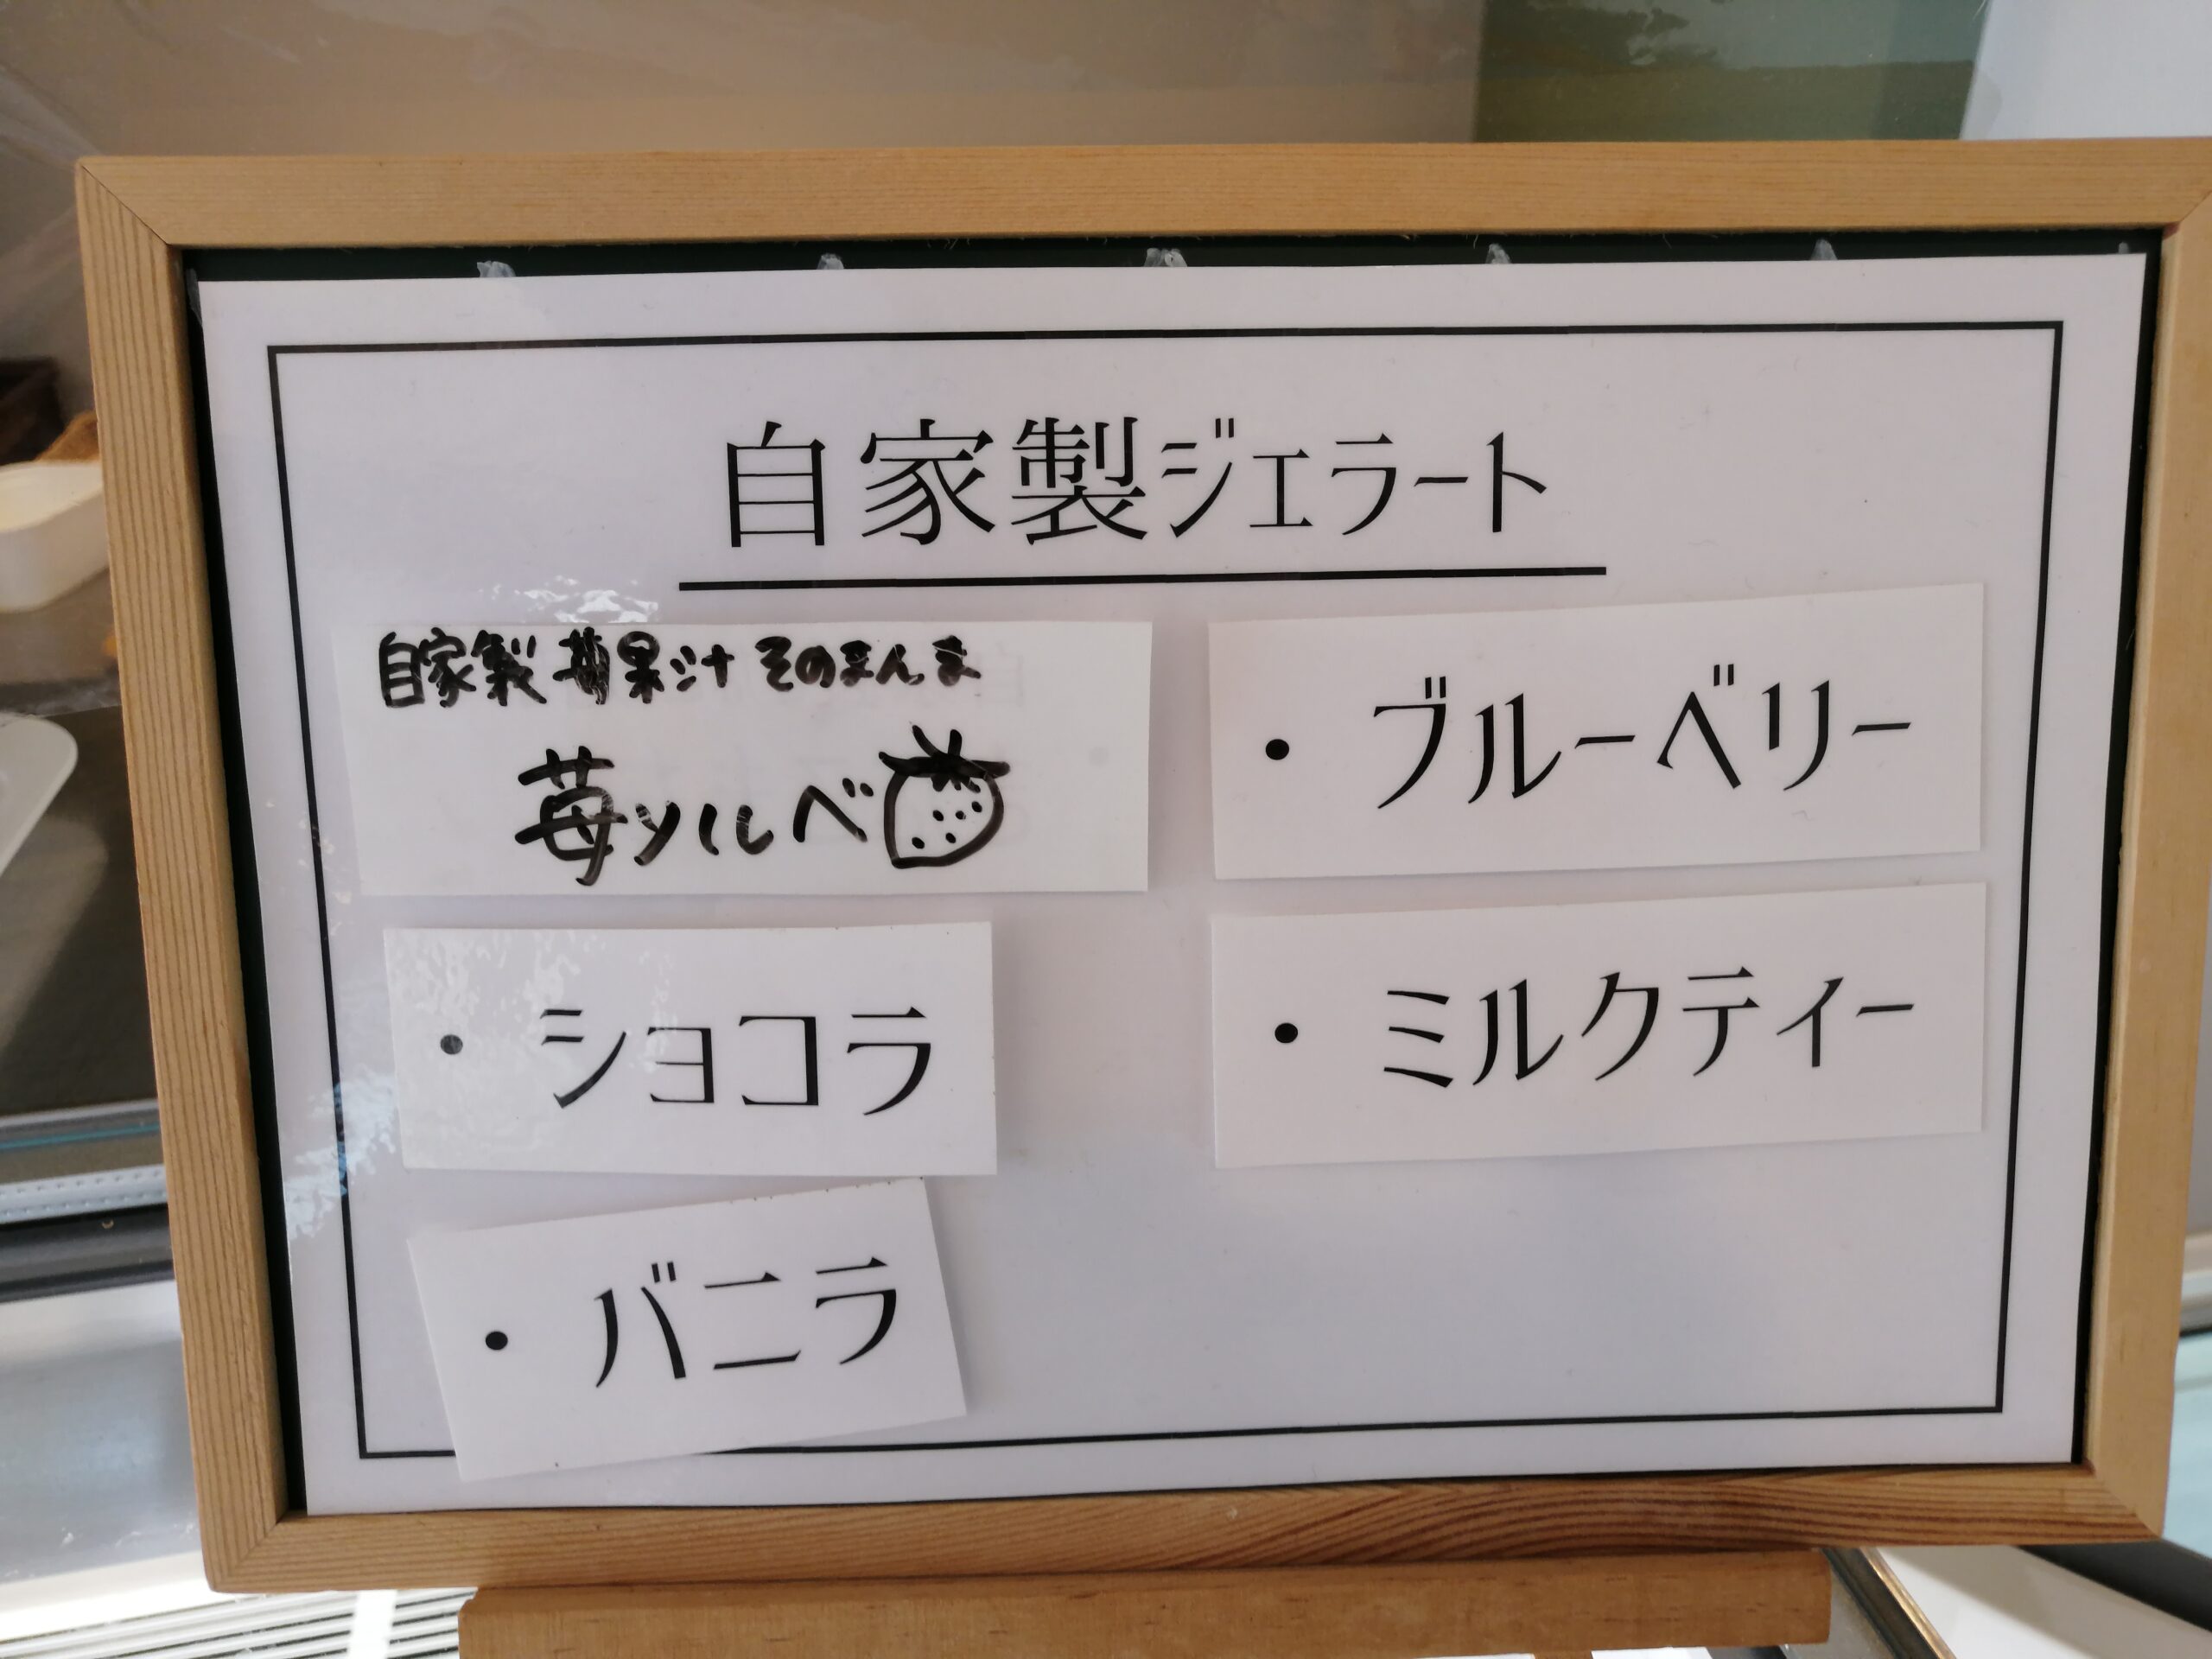 自家製ジェラート
自家製 苺果汁 そのまんま
苺ソルベ
・ブルーベリー
・ショコラ
・ミルクティー
・バニラ